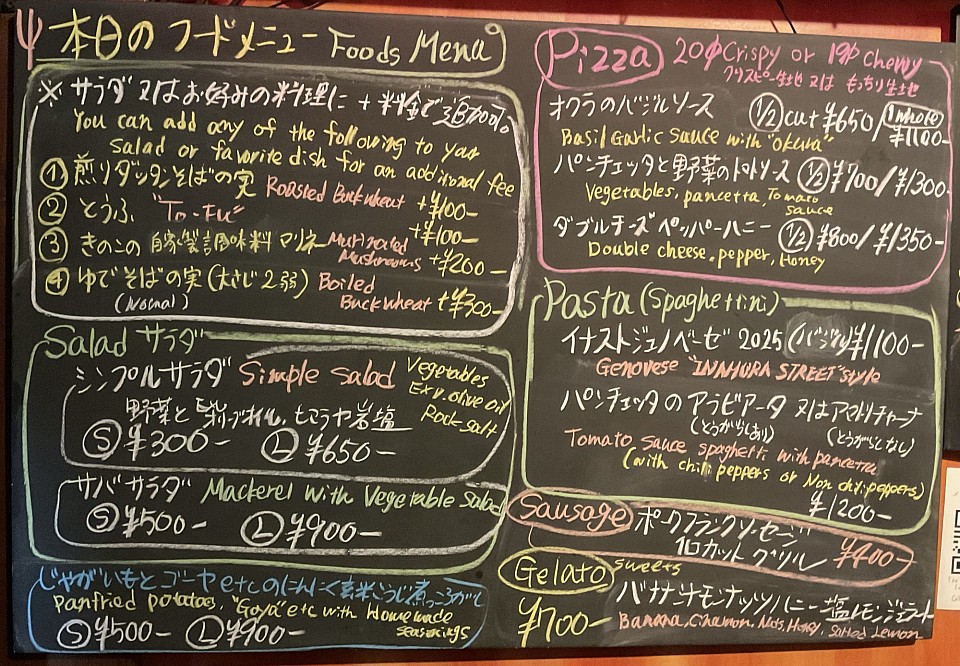 本日のフードメニュー Foods Menu
※ サラダ又はお好みの料理に + 料金で追加可。
You can add any of the following to your
salad or favorite dish for an additional fee
① 煎りダッタンそばの実 Roasted Buckwheat +¥100-
② とうふ "To-Fu" +¥100-
③ きのこの自家製調味料マリネ Marinated Mushrooms +¥200-
④ ゆでそばの実 (大さじ2弱) Boiled
(Normal) Buckwheat +¥300-
Salad サラダ
シンプルサラダ Simple salad Vegetables
Ex.v. olive oil
Rock salt
野菜と ヒマラヤ岩塩
Ⓢ ¥300- Ⓛ ¥650-
サバサラダ Mackerel with Vegetable Salad
Ⓢ ¥500- Ⓛ ¥900-
じゃがいもとゴーヤetcのにんにく玄米こうじ煮っころがし
Panfried potatoes, "Goya" etc with Homemade
seasonings
Ⓢ ¥500- Ⓛ ¥900-
Pizza 20φ Crispy or 19φ Chewy
クリスピー生地 又は もっちり生地
オクラのバジルソース ½ cut ¥650/1 whole ¥1100-
Basil Garlic sauce with "okura"
パンチェッタと野菜のトマトソース ½ ¥700/¥1300-
Vegetables, pancetta, Tomato
sauce
ダブルチーズペッパーハニー ½ ¥800/¥1350-
Double cheese, pepper, Honey
Pasta (Spaghettini)
イナストジェノベーゼ 2025 (バジル) ¥1100-
Genovese "INAHURA STREET" style
パンチェッタのアラビアータ 又はアマトリチャーナ
(とうがらしあり) (とうがらしなし)
Tomato sauce spaghetti with pancetta
(with chili peppers or Non chili peppers)
¥1200-
Sausage ポークフランクソーセージ
1口カットグリル ¥400-
Gelato sweets
バナナシナモンナッツハニー塩レモンジェラート
¥700- Banana, Cinamon, Nuts, Honey, Salted Lemon